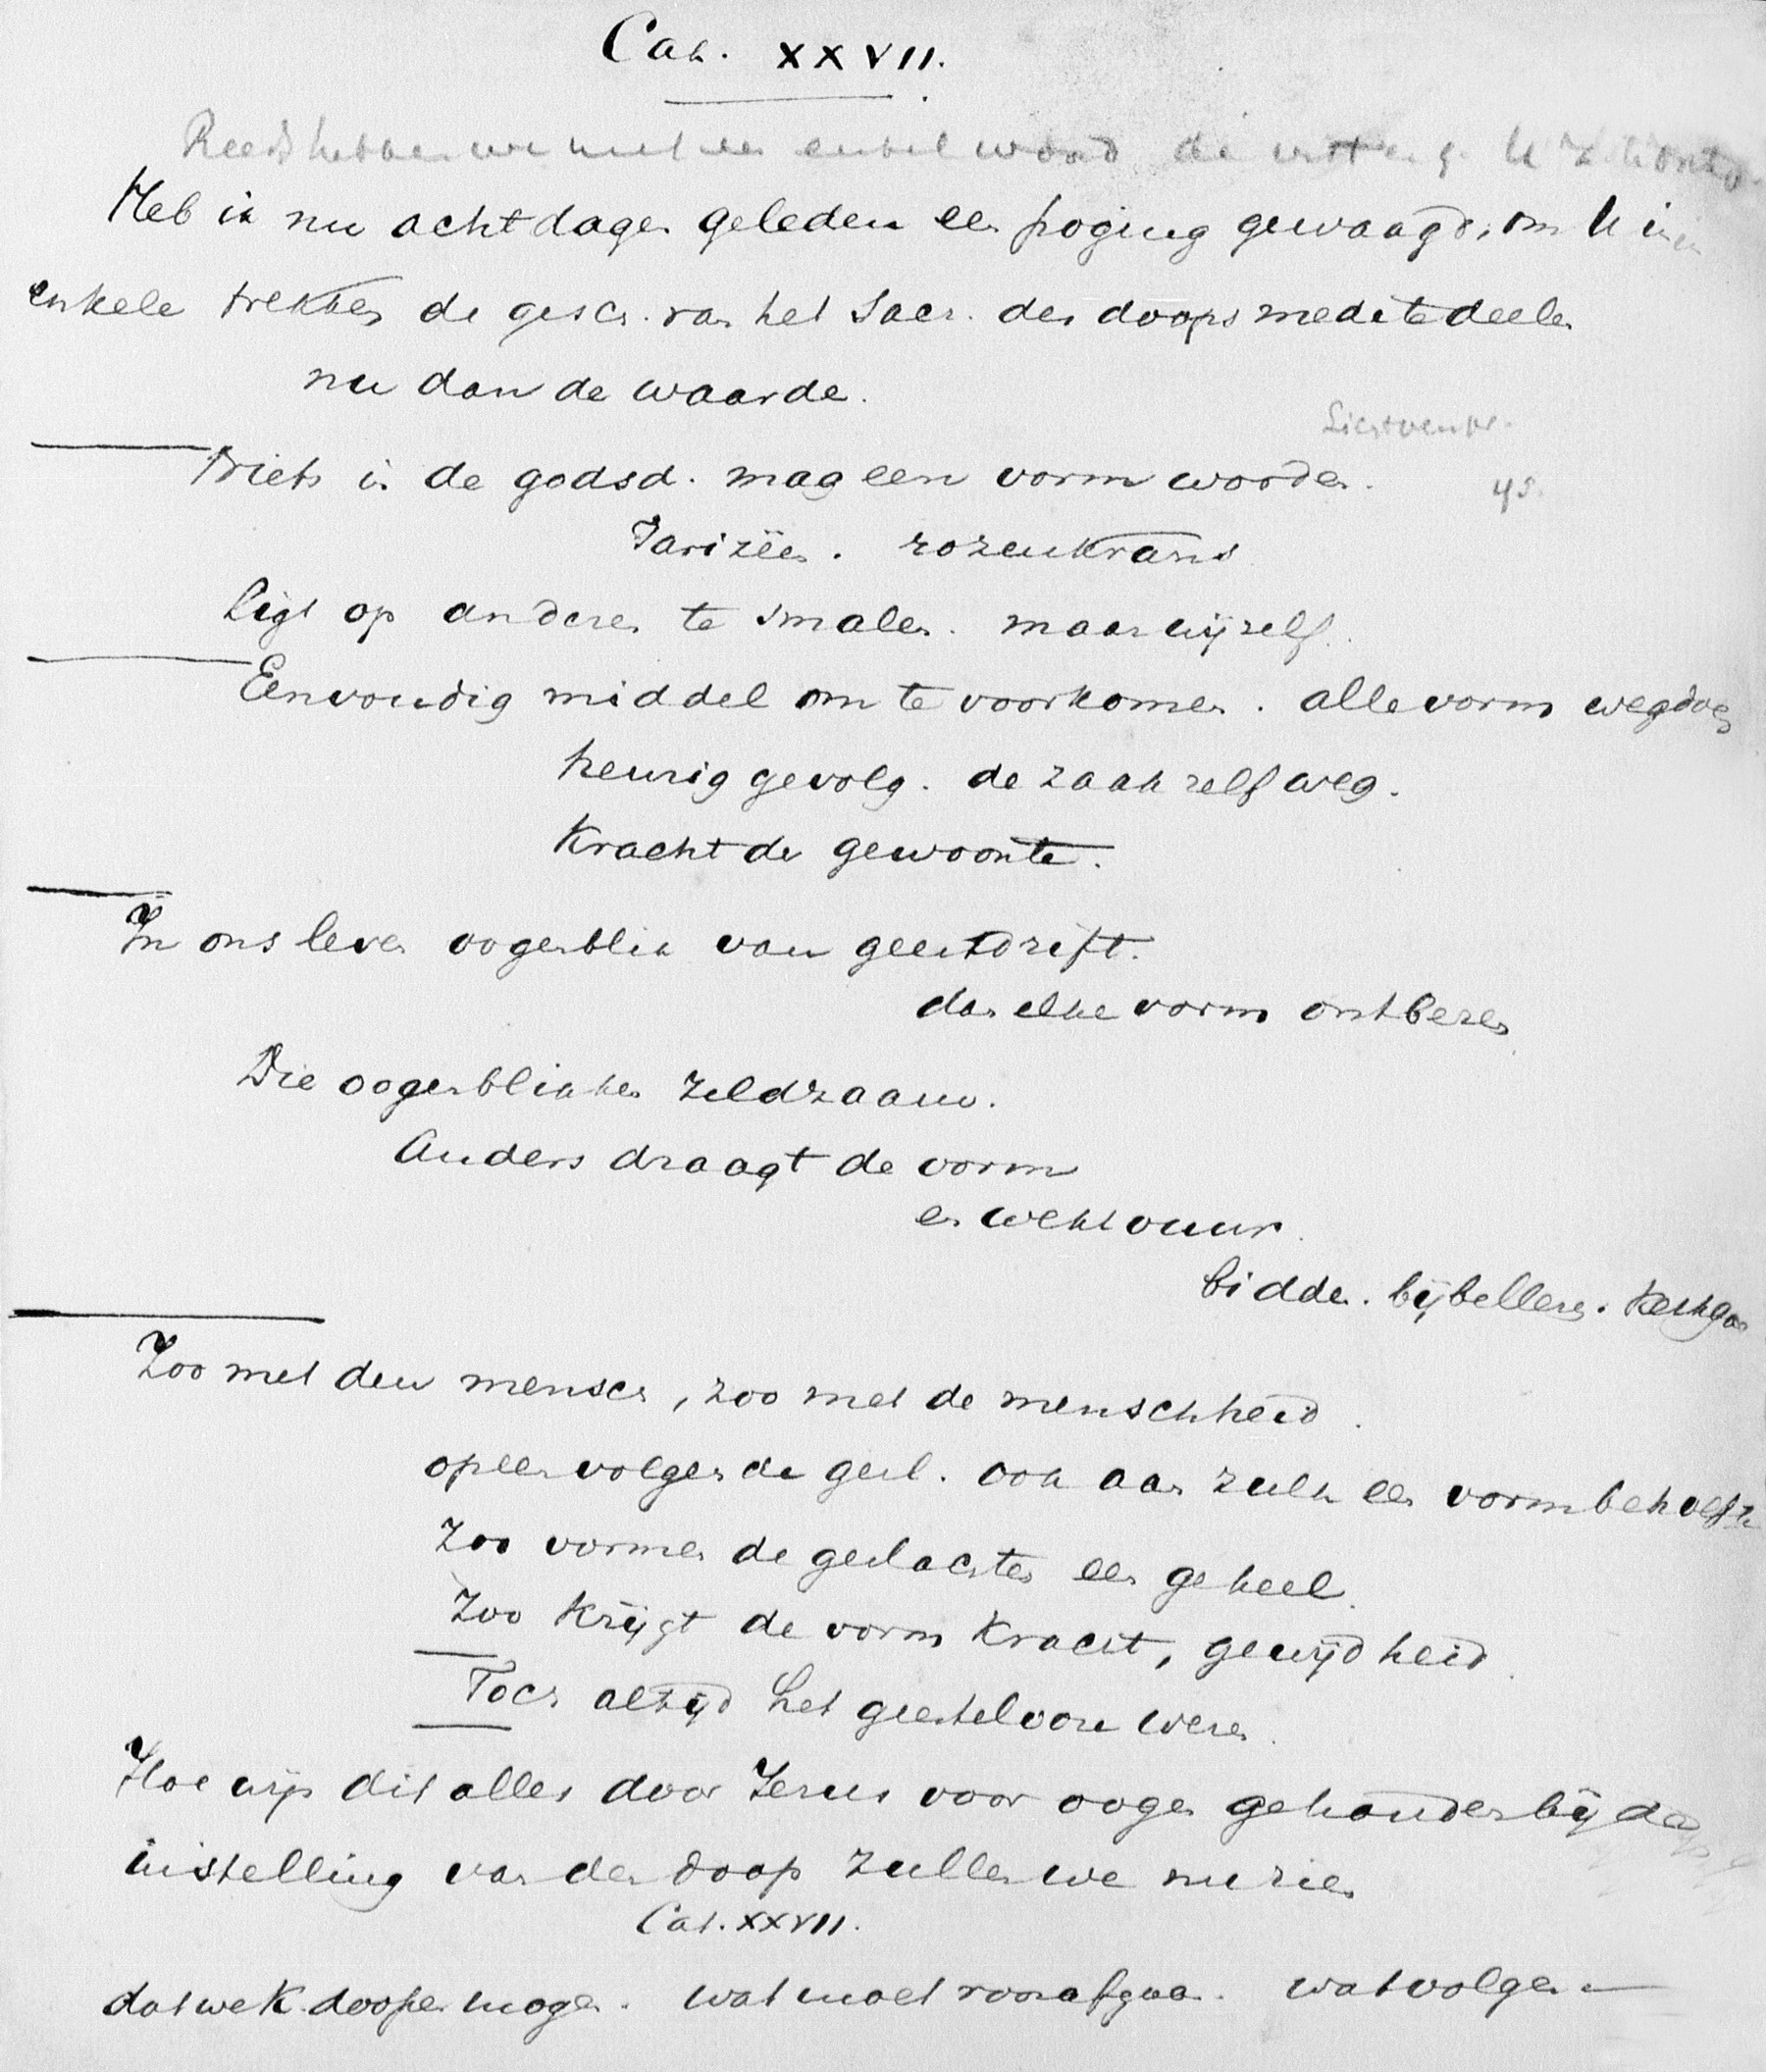 Cat. XXVII.
Reeds hebben we met een enkel woord de
Heb ik nu acht dagen geleden een poging gewaagd, om U in
enkele trekken de gesch. van het Sacr. des doops mede te deelen
nu dan de waarde.
Niets in de godsd. mag een vorm worden.
Farizëen. rozenkrans
Ligt op anderen te smalen. maar wij zelf.
Eenvoudig middel om te voorkomen. alle vorm wegdoen
treurig gevolg. de zaak zelf weg.
Kracht der gewoonte.
In ons leven oogenblik van geestdrift.
dan elke vorm ontberen
Die oogenblikken zeldzaam.
Anders draagt de vorm
en wekt vuur.
bidden. bijbellezen. kerkgaan
Zoo met den mensch, zoo met de menschheid.
opeenvolgende gesl. ook aan zulk een vorm behoefte
Zoo vormen de geslachten een geheel.
Zoo krijgt de vorm kracht, gewijdheid.
Toch altijd het geestelooze weren.
Hoe wijs dit alles door Jezus voor oogen gehouden bij de
instelling van den doop zullen we nu zien
Cat. XXVII.
dat we K. doopen mogen. wat moet voorafgaan. wat volgen —